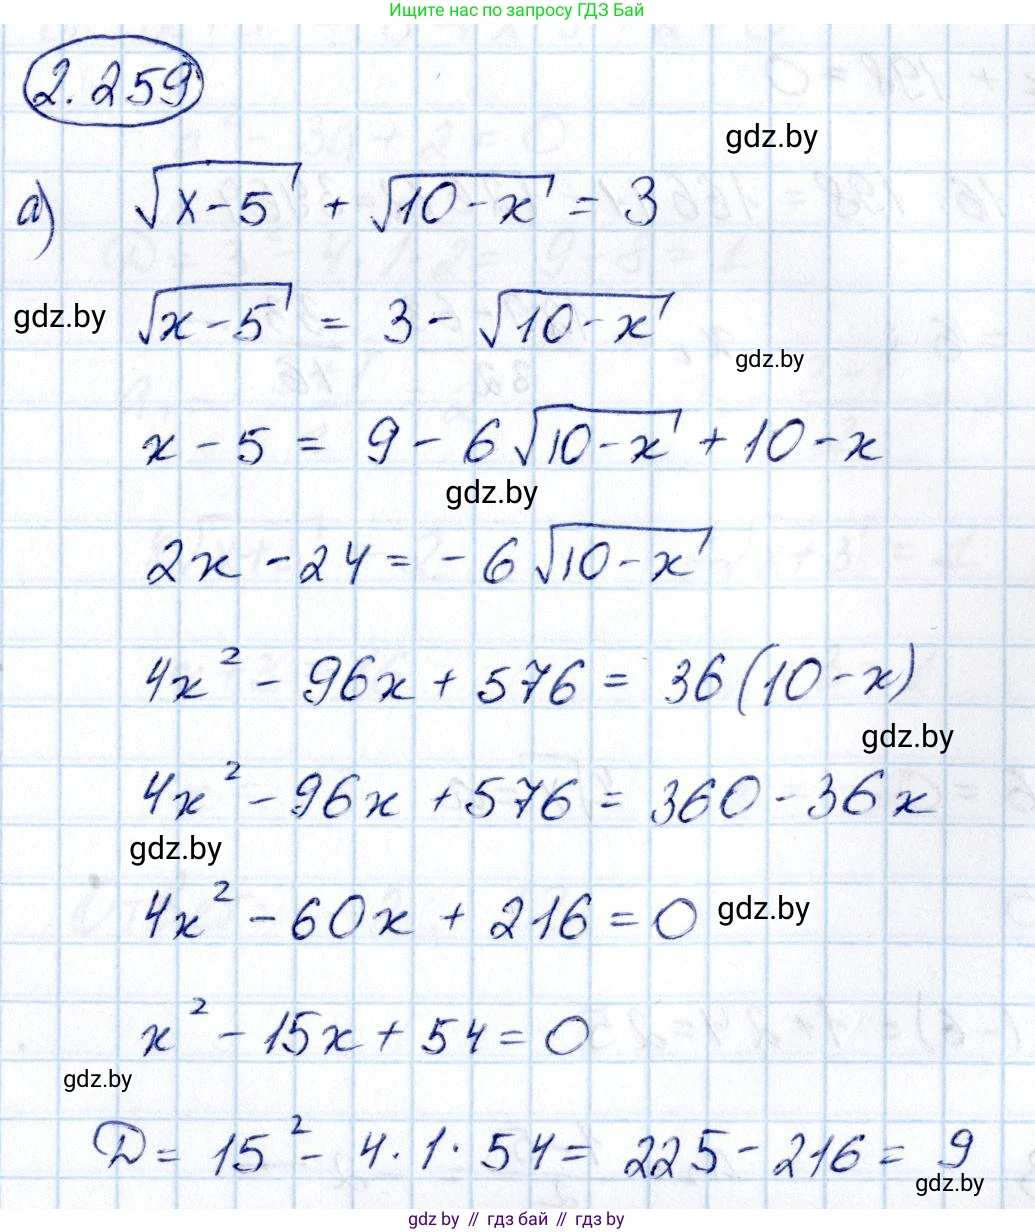 Ищите нас по запросу ГДЗ Бай
2.259
gdz.by
а) √(x-5) + √(10-x) = 3
gdz.by
√(x-5) = 3 - √(10-x)
gdz.by
x - 5 = 9 - 6√(10-x) + 10 - x
gdz.by
2x - 24 = -6√(10-x)
4x² - 96x + 576 = 36(10-x)
gdz.by
4x² - 96x + 576 = 360 - 36x
gdz.by
4x² - 60x + 216 = 0
gdz.by
x² - 15x + 54 = 0
gdz.by
D = 15² - 4·1·54 = 225 - 216 = 9
gdz.by
gdz.by // гдз бай // гдз by